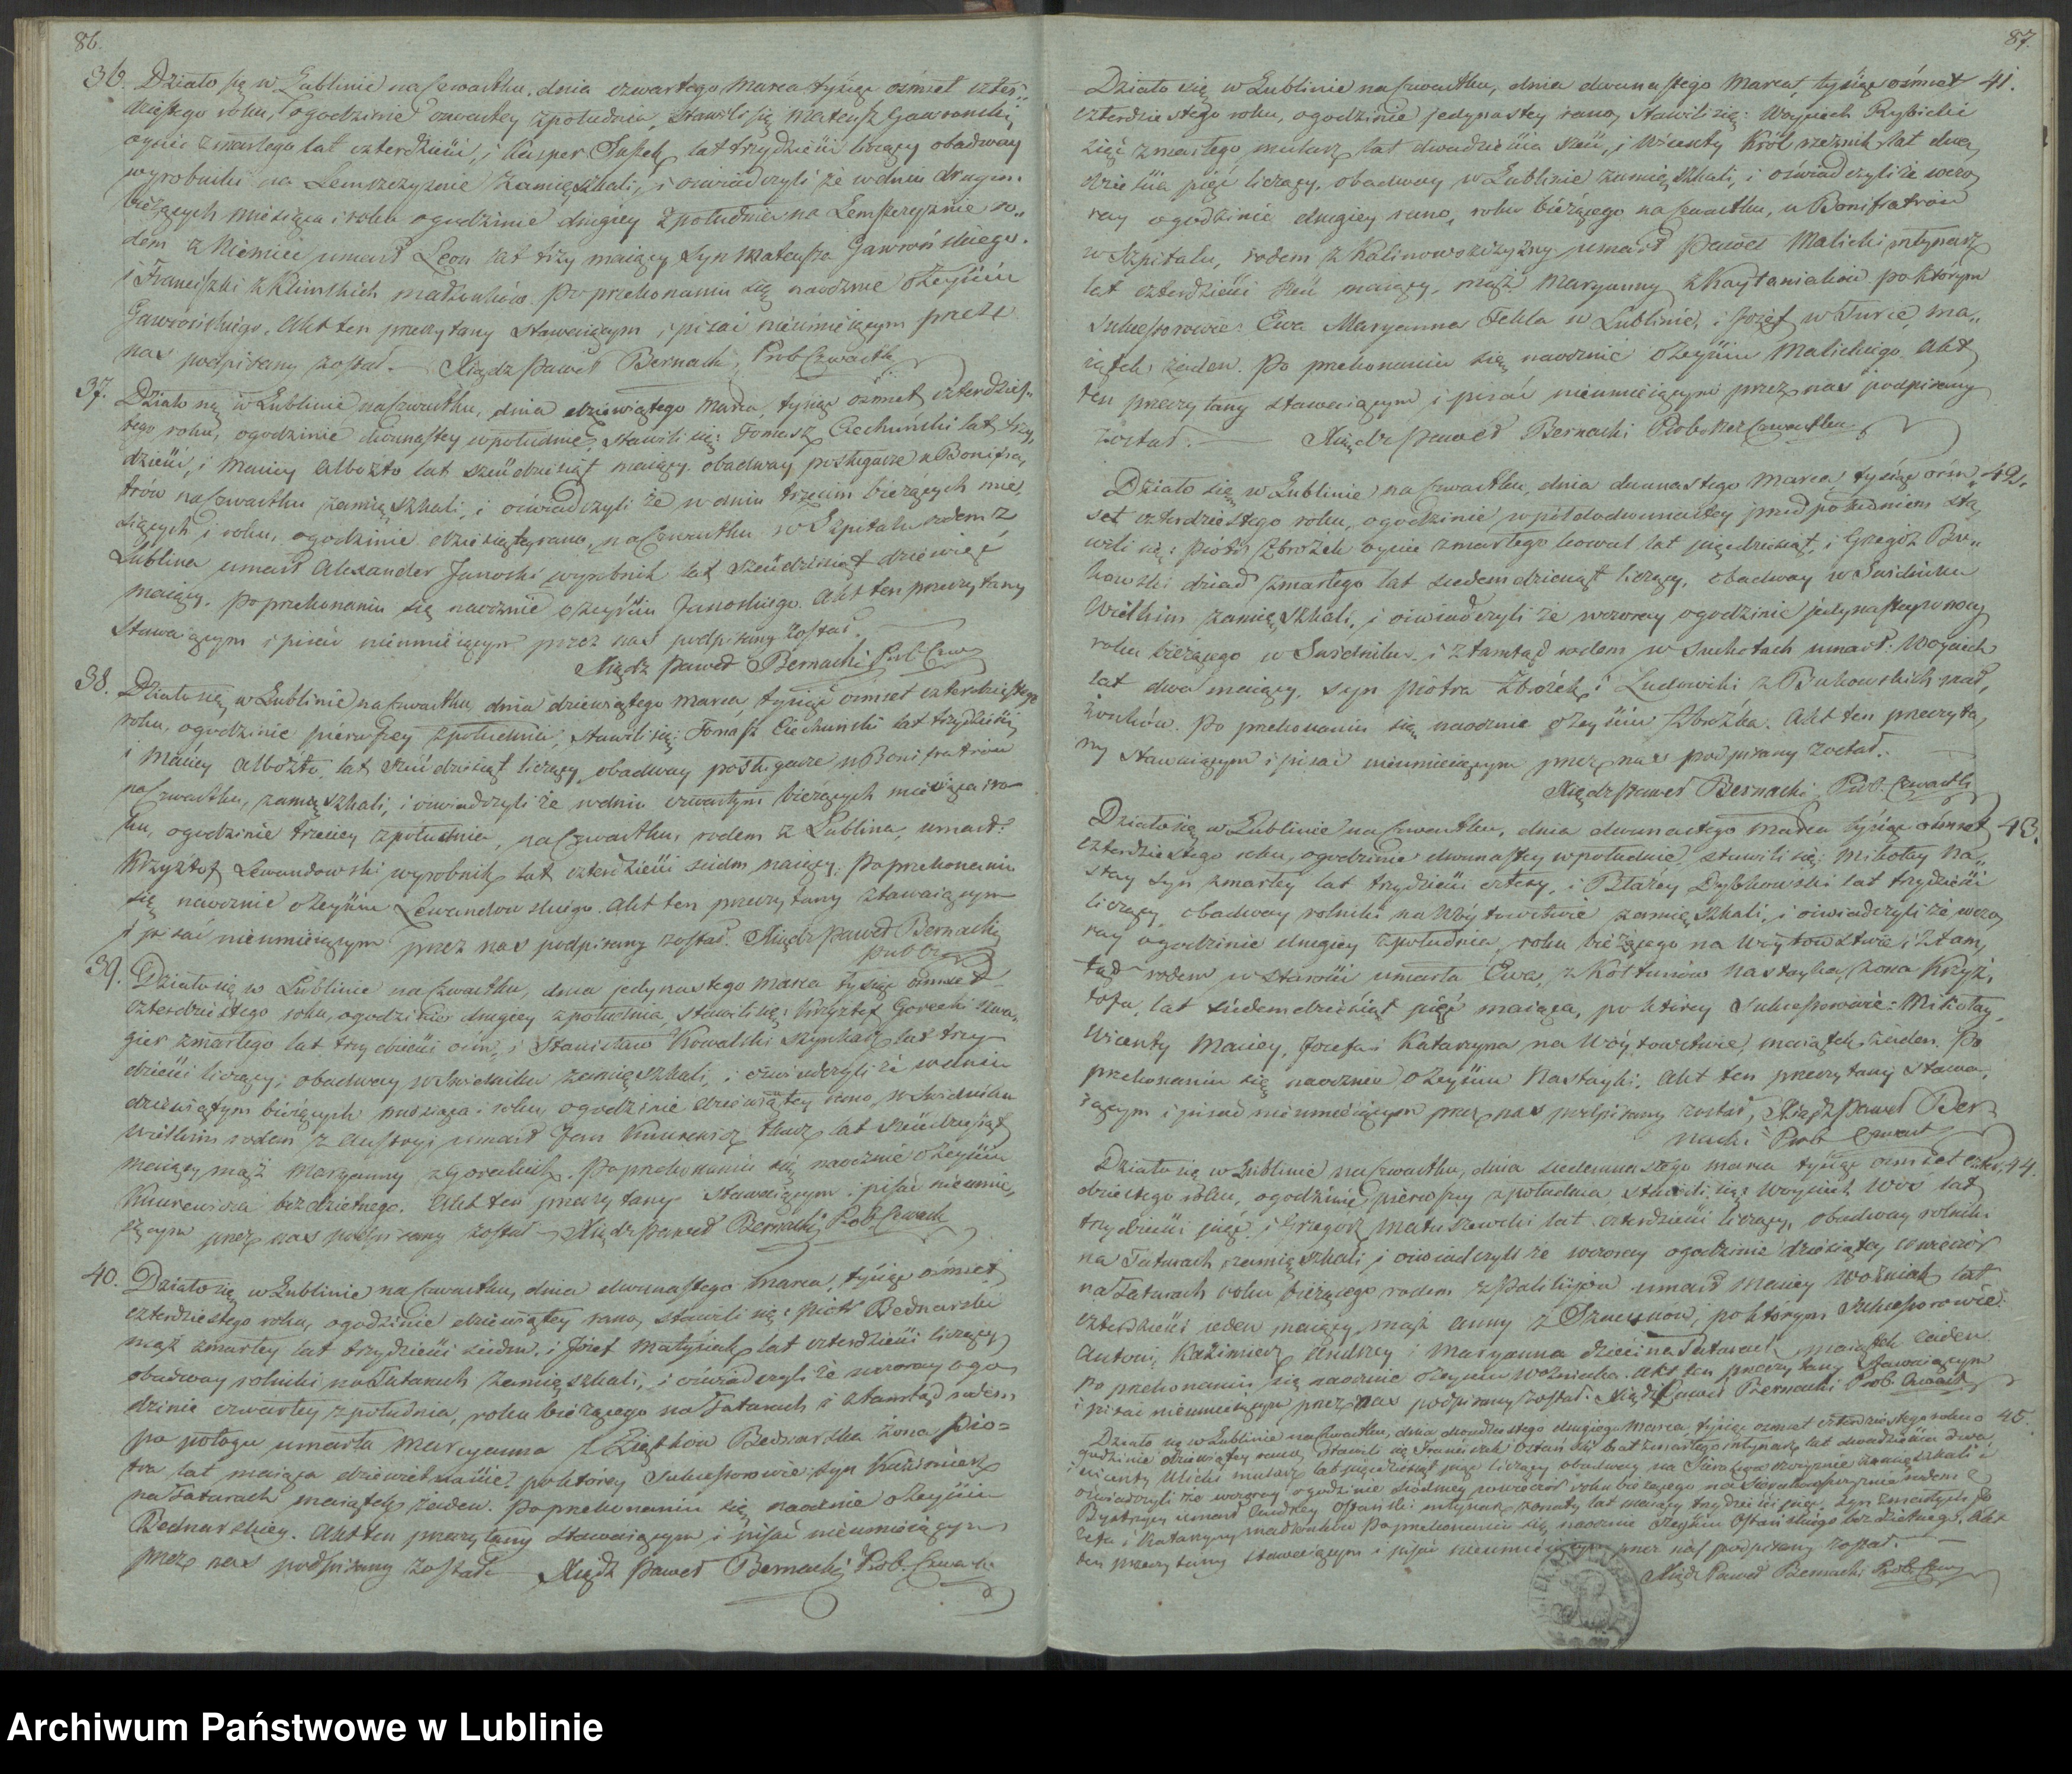 86.
36. Działo się w Lublinie na Czwartku, dnia czwartego Marca tysiąc ośmset czter„
dziestego roku, o godzinie czwartey z południa, stawili się Mateusz Gawroński,
oyciec zmarłego lat czterdzieści, i Kasper lat trzydzieści liczący obadway
wyrobnicy na Lemszczyznie zamięszkali, i oświadczyli że w dniu drugim
bieżących miesiąca i roku o godzinie drugiey z południa na Lemszczyznie ro„
dem z umarł Leon lat trzy maiący syn Mateusza Gawrońskiego
i Franciszki z małżonków. Po przekonaniu się naocznie o zeyściu
Gawrońskiego, Akt ten przeczytany stawaiącym i pisać nieumieiącym przez
nas podpisany został. Xiądz Paweł Bernacki, Prob. Czwartk
37. Działo się w Lublinie na Czwartku, dnia dziewiątego Marca, tysiąc ośmset czterdzies„
tego roku, o godzinie dwunastey w południe, stawili się: Tomasz Ciechuński lat trzy„
dzieści, i Maciey Albozto lat sześćdziesiąt maiący. obadway posługacze u Bonifra„
trów na Czwartku zamięszkali, i oświadczyli że w dniu trzecim bieżących mie„
sięcych i roku, o godzinie dziesiątey rano, na Czwartku w Szpitalu rodem z
Lublina umarł Alexander Janoski wyrobnik lat sześćdziesiąt dziewięć
maiący. Po przekonaniu się naocznie o zeyściu Janoskiego. Akt ten przeczytany
stawaiącym i pisać nieumieiącym przez nas podpisany został.
Xiądz Paweł Bernacki Prob. Czw
38. Działo się w Lublinie na Czwartku, dnia dziewiątego marca, tysiąc ośmset czterdziestego
roku, o godzinie pierwszey z południa, stawili się; Tomasz Ciechuński lat trzydzieści
i Maciey Albozto, lat sześćdziesiąt liczący, obadway posługacze u Bonifratrów
na Czwartku, zamięszkali, i oświadczyli że w dniu czwartym bieżących miesiąca i ro
ku, o godzinie trzeciey z południa, na Czwartku, rodem z Lublina, umarł:
Krzysztof Lewandowski wyrobnik lat czterdzieści siedm maiący. Po przekonaniu
się naocznie o zeyściu Lewandowskiego. Akt ten przeczytany stawaiącym
i pisać nieumieiącym przez nas podpisany został. Xiądz Paweł Bernacki
Prob Czw
39. Działo się w Lublinie na Czwartku, dnia jedynastego Marca tysiąc ośmset
czterdziestego roku, o godzinie drugiey z południa, stawili się: Krzysztof Gorecki szwa„
gier zmarłego lat trzydzieści ośm, i Stanisław Kowalski szynkarz lat trzy
dzieści liczący; obadway w Swidniku zamięszkali, i oświadczyli że w dniu
dziewiątym bieżących miesiąca i roku, o godzinie dziewiątey rano, w Swidniku
Wielkim rodem z Austryi umarł Jan Kniurewicz tkacz lat sześćdziesiąt
maiący mąż Maryanny z Goreckich. Po przekonaniu się naocznie o zeyściu
Kniurewicza bezdzietnego. Akt ten przeczytany stawaiącym i pisać nieumie„
iącym przez nas podpisany został – Xiądz Paweł Bernacki, Prob. Czwartk
40. Działo się w Lublinie na Czwartku, dnia dwunastego Marca, tysiąc ośmset
czterdziestego roku, o godzinie dziewiątey rano, stawili się: Piotr Bednarski
mąż zmarłey lat trzydzieści siedm. i Józef Matysiak lat czterdzieści liczący
obadway rolniki na Tatarach zamięszkali, i oświadczyli że wczoray o go
dzinie czwartey z południa, roku bieżącego na Tatarach i ztamtąd rodem
po połogu umarła Maryanna z Ziętków Bednarska żona Pio=
tra lat maiąca dziewietnaście, po którey sukcessorowie: syn Kazimierz
na Tatarach maiątek żaden. Po przekonaniu się naocznie o zeyściu
Bednarskiey. Akt ten przeczytany stawaiącym i pisać nieumieiącym
przez nas podpisany został – Xiądz Paweł Bernacki, Prob. Czwartk
87.
Działo się w Lublinie na Czwartku, dnia dwunastego Marca, tysiąc ośmset 41.
czterdziestego roku, o godzinie jedynastey rano, stawili się: Woyciech Rybicki
zięć zmarłego mularz lat dwadzieścia sześć, i Wincenty Król rzeźnik lat dwa„
dzieścia pięć liczący, obadway w Lublinie zamięszkali, i oświadczyli że wczo„
ray o godzinie drugiey rano, roku bieżącego na Czwartku, u Bonifratrów
w Szpitalu, rodem z Kalinowszczyzny umarł Paweł Malicki młynarz
lat czterdzieści sześć maiący, mąż Maryanny z Kaytaniaków po którym
sukcessorowie: Ewa Maryanna Tekla w Lublinie, i Józef w Turce, ma„
iątek żaden. Po przekonaniu się naocznie o zeyściu Malickiego. Akt
ten przeczytany stawaiącym i pisać nieumieiącym przez nas podpisany
został. Xiądz Paweł Bernacki Proboszcz Czwartku
Działo się w Lublinie na Czwartku, dnia dwunastego Marca tysiąc ośm„ 42.
set czterdziestego roku, o godzinie w pół do dwunastey przed południem sta„
wili się: Piotr Zbrożek oyciec zmarłego kowal lat pięćdziesiąt, i Grzegorz Bu„
kowski dziad zmarłego lat siedemdziesiąt liczący, obadway w Swidniku
Wielkim zamięszkali, i oświadczyli że wczoray o godzinie jedynastey w nocy
roku bieżącego w Swidniku i ztamtąd rodem w suchotach umarł: Woyciech
lat dwa maiący, syn Piotra Zbrożek i Ludwiki z Bukowskich mał„
żonków. Po przekonaniu się naocznie o zeyściu Zbrożka. Akt ten przeczyta„
ny stawaiącym i pisać nieumieiącym przez nas podpisany został.
Xiądz Paweł Bernacki Prob. Czwartk
Działo się w Lublinie na Czwartku, dnia dwunastego Marca tysiąc ośmset 43.
czterdziestego roku, o godzinie dwunastey w południe, stawili się: Mikołay Na„
stay syn zmarłey lat trzydzieści cztery, i Błażey Dybkowski lat trzydzieści
liczący, obadway rolniki na Wóytowstwie zamięszkali, i oświadczyli że wczo„
ray o godzinie drugiey z południa, roku bieżącego na Wóytowstwie i ztam„
tąd rodem w starości umarła Ewa, z Kołtunów Nastayka, żona Krzysz„
tofa, lat siedemdziesiąt pięć maiąca, po którey sukcessorowie: Mikołay,
Wicenty Maciey, Jozefa i Katarzyna na Wóytowstwie, maiątek żaden. Po
przekonaniu się naocznie o zeyściu Nastayki. Akt ten przeczytany stawa„
iącym i pisać nieumieiącym przez nas podpisany został, Xiądz Paweł Ber
nacki Prob Czwart
Działo się w Lublinie na Czwartku, dnia siedemnastego marca tysiąc ośmset czter 44.
dziestego roku, o godzinie pierwszey z południa stawili się: Woyciech Wós lat
trzydzieści pięć, i Grzegorz Matuszewski lat czterdzieści liczący, obadway rolniki
na Tatarach zamięszkali i oświadczyli że wczoray o godzinie dziesiątey w wieczór
na Tatarach roku bieżącego rodem z umarł Maciey Woźniak lat
czterdzieści ieden maiący mąż Anny z po którym sukcessorowie:
Antoni, Kazimierz Andrzey i Maryanna dzieci na Tatarach maiątek żaden
Po przekonaniu się naocznie o zeyściu Woźniaka. Akt ten przeczytany stawaiącym
i pisać nieumieiącym przez nas podpisany został. Xiądz Paweł Bernacki Prob. Czwart
Działo się w Lublinie na Czwartku, dnia dwudziestego drugiego Marca, tysiąc ośmset czterdziestego roku o 45.
godzinie dziewiątey rano, stawili się Franciszek Ostański brat zmarłego młynarz lat dwadzieścia dwa
i Wicenty Ulicki mularz lat pięćdziesiąt pięć liczący obadway na Sierakowszczyznie zamięszkali i
oświadczyli że wczoray o godzinie siódmey w wieczór roku bieżącego na Sierakowszczyznie rodem z
Bystrzycy umarł Andrzey Ostański młynarz żonaty lat maiący trzydzieści pięć, syn zmarłych Jó
zefa i Katarzyny małżonków Po przekonaniu się naocznie o zeyściu Ostańskiego bezdzietnego. Akt
ten przeczytany stawaiącym i pisać nieumieiącym przez nas podpisany został.
Xiądz Paweł Bernacki Prob. Czw
Archiwum Państwowe w Lublinie